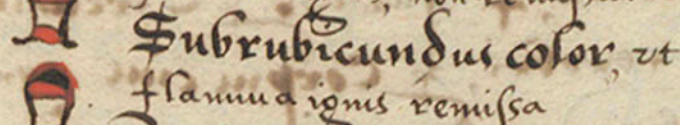 Subrubicundus color, vt
flamma ignis remissa